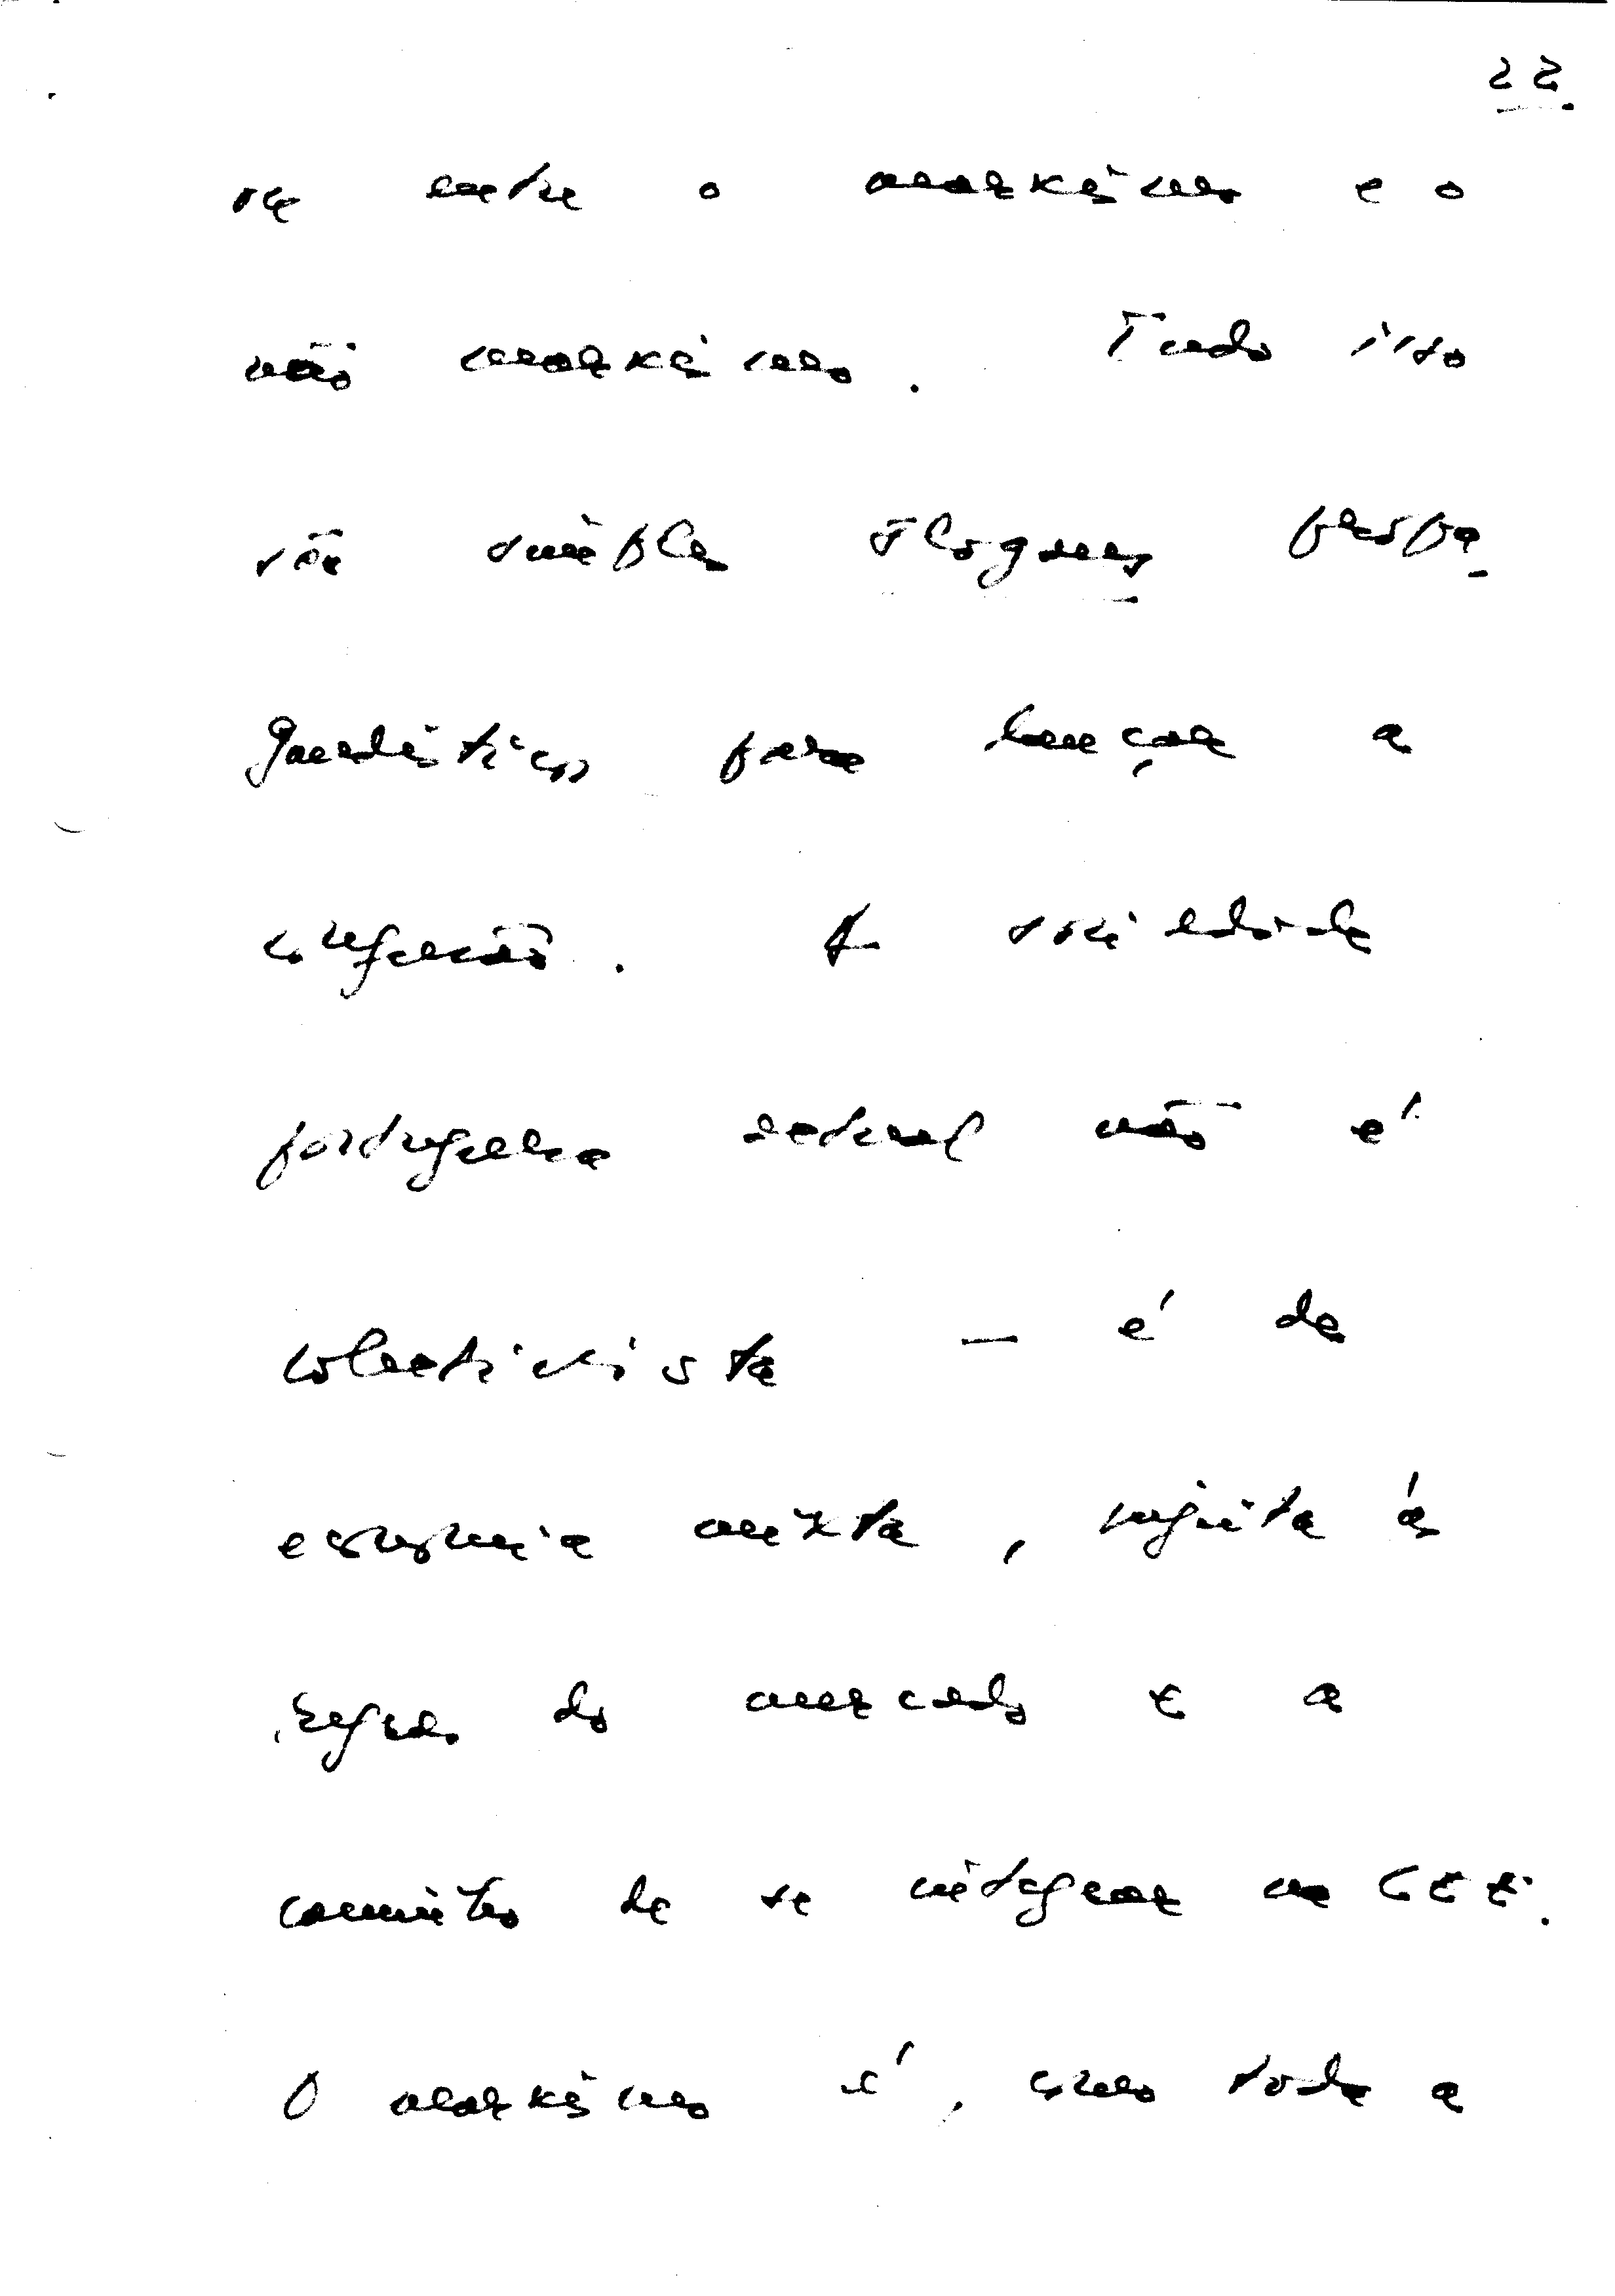 22
se entre o marxismo e o
não marxismo. Tudo isso
são simples slogans propa_
gandísticos para lançar a
confusão. A sociedade
portuguesa actual não é
colectivista — é de
economia mixta, sujeita às
regras do mercado e a
caminho de se integrar na CEE.
O marxismo é, como toda a